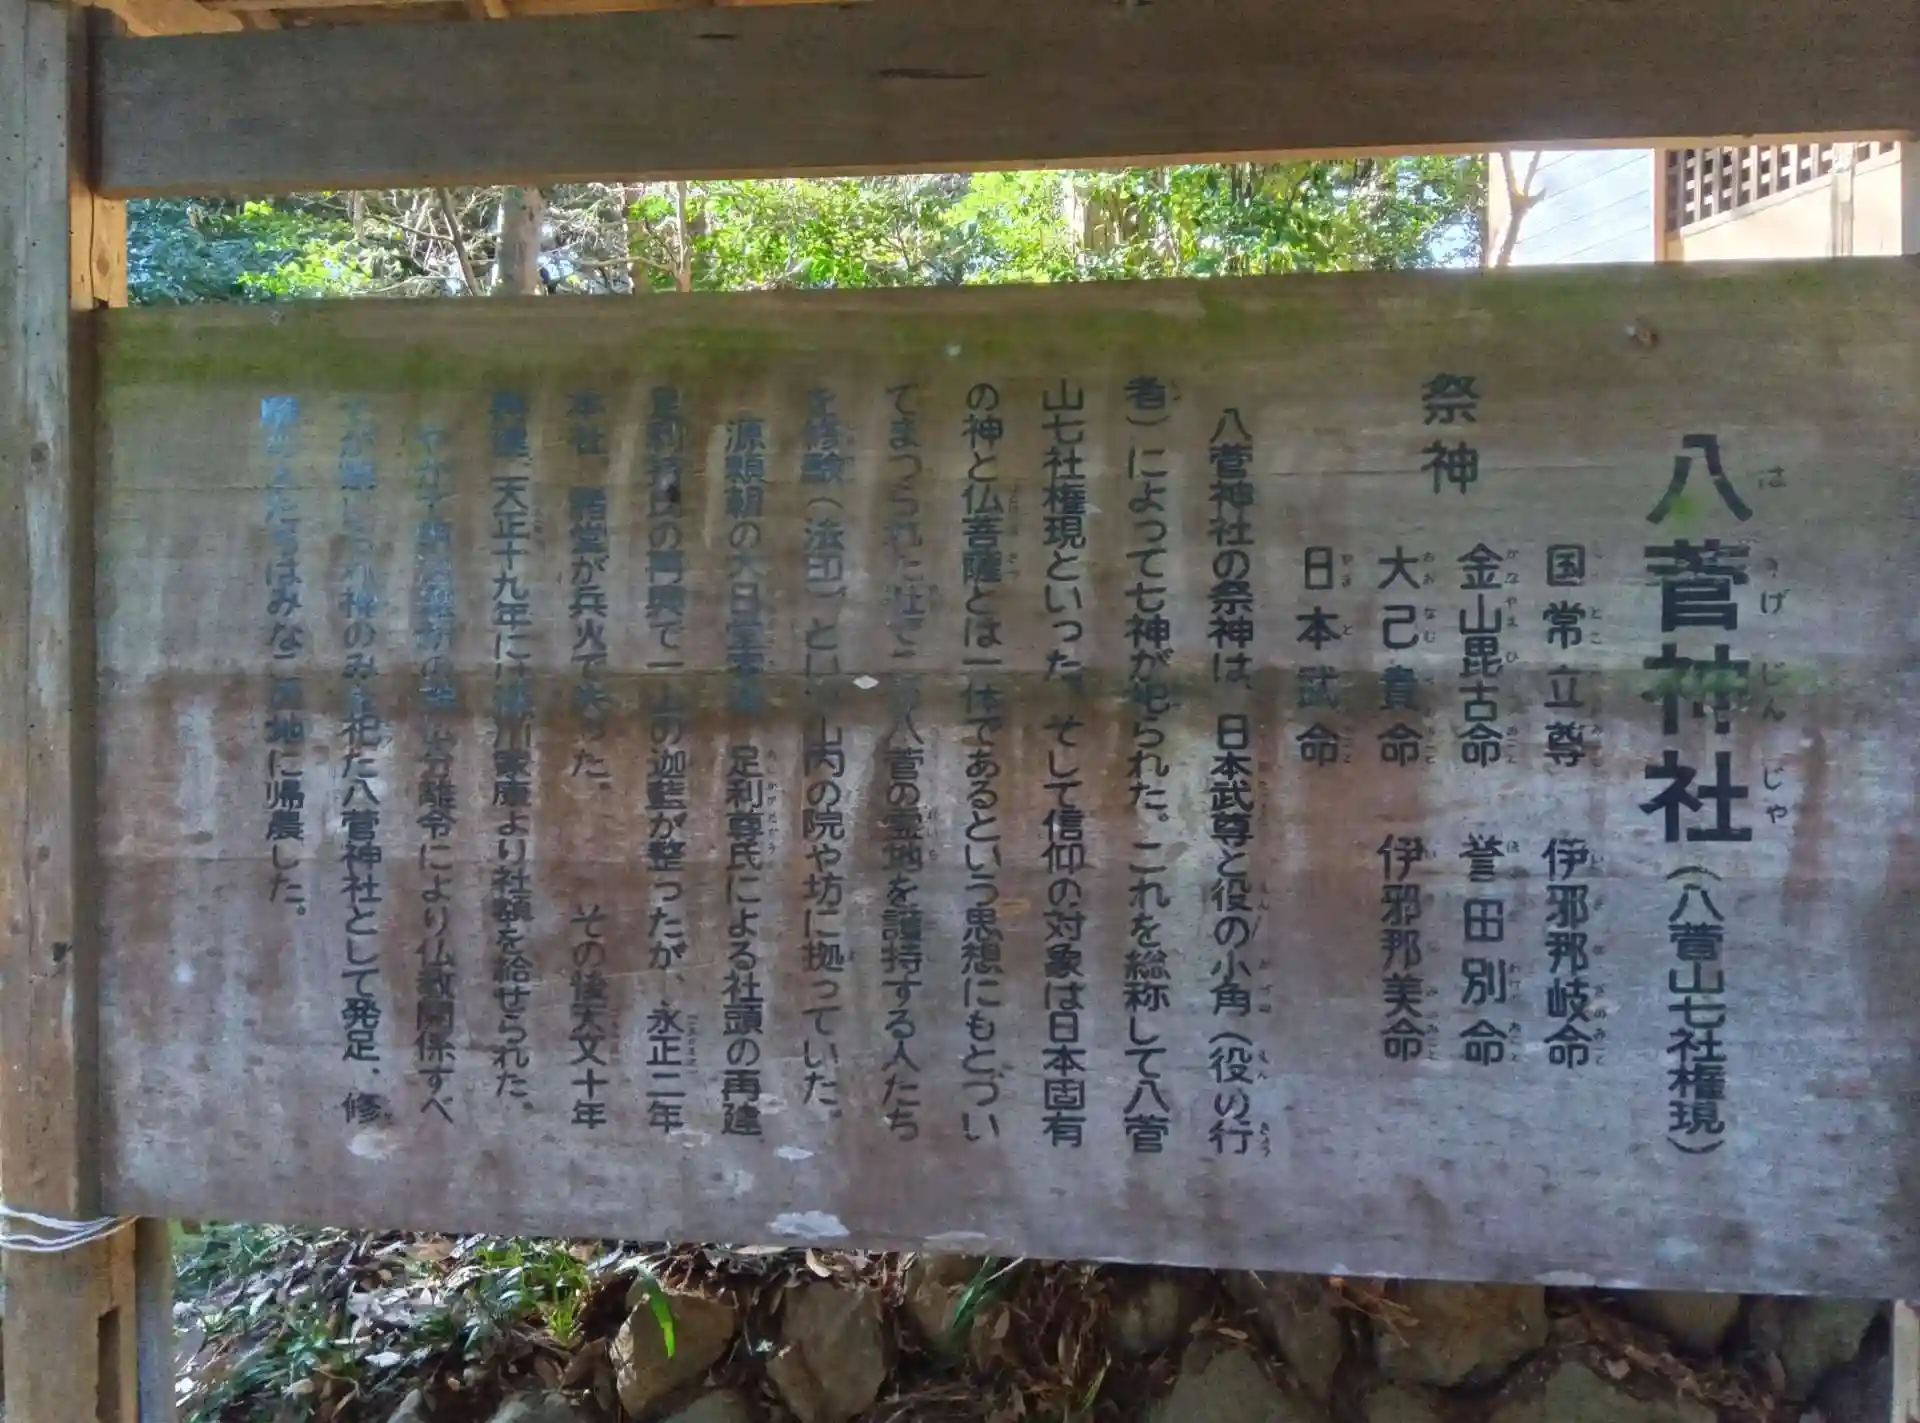 八菅神社（八菅山七社権現）
はすげじんじゃ
祭神
国常立尊　伊邪那岐命
金山毘古命　誉田別命
大己貴命　伊邪那美命
日本武命
八菅神社の祭神は、日本武尊と役の小角（役の行
者）によって七神が祀られた。これを総称して八菅
山七社権現といった。そして信仰の対象は日本固有
の神と仏菩薩とは一体であるという思想にもとづい
てまつられた社で、八菅の霊地を護持する人たち
を修験（法印）といい山内の院や坊に拠っていた。
源頼朝の大日堂 足利尊氏による社頭の再建
足利持氏の再興で一山の迦藍が整ったが、永正二年
本社 諸堂が兵火で失った。 その後天文十年
再建、天正十九年には徳川家康より社領を給せられた。
やがて明治維新の神仏分離令により仏教関係すべ
てが禁じられ神のみを祀た八菅神社として発足、修
験の人たちはみなこの地に帰農した。